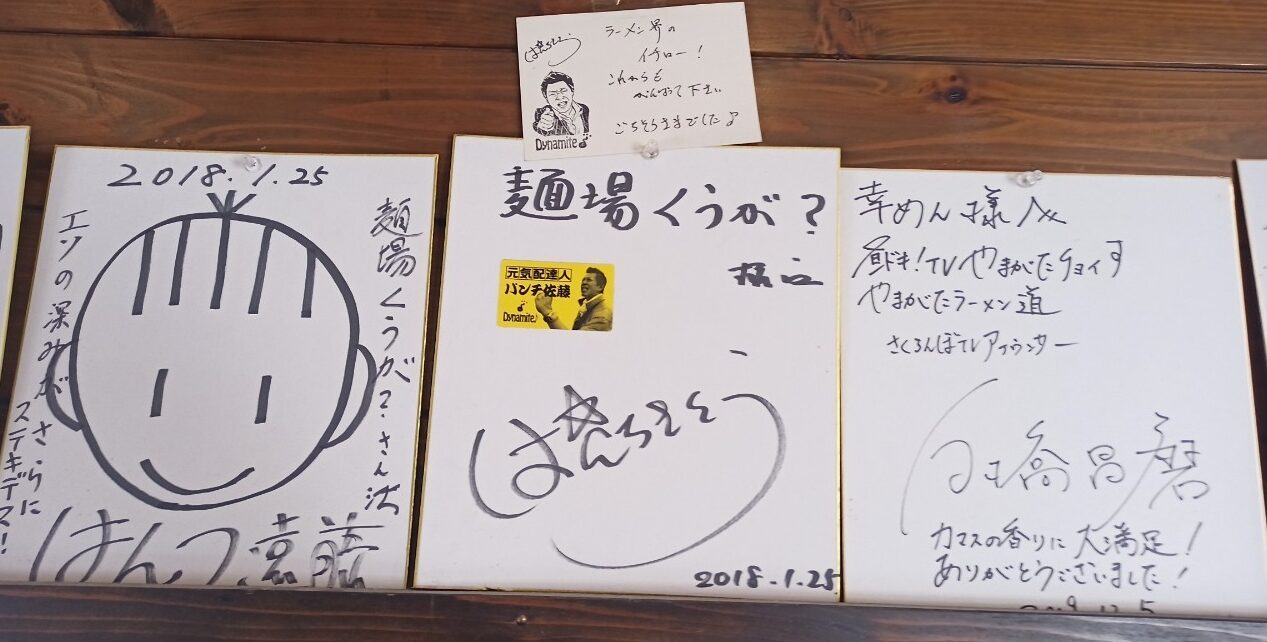 ラーメン界の
イチロー!
これからも
がんばって下さい
ごちそうさまでした♪
Dynamite
2018.1.25
麺場くうが?さん江
エソの深みが さらに
ステキデス!
はんつ遠藤
麺場くうが?
元気配達人
パンチ佐藤
Dynamite♪
ぱんちさとう
2018.1.25
幸めん様
昼ドキ!TVやまがたチョイす
やまがたラーメン道
さくらんぼTVアナウンサー
橋昌磨
カマスの香りに大満足!
ありがとうございました!